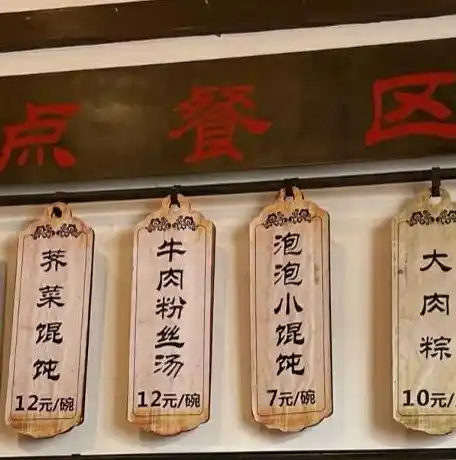 点餐区
荠菜馄饨
12元/碗
牛肉粉丝汤
12元/碗
泡泡小馄饨
7元/碗
大肉粽
10元/